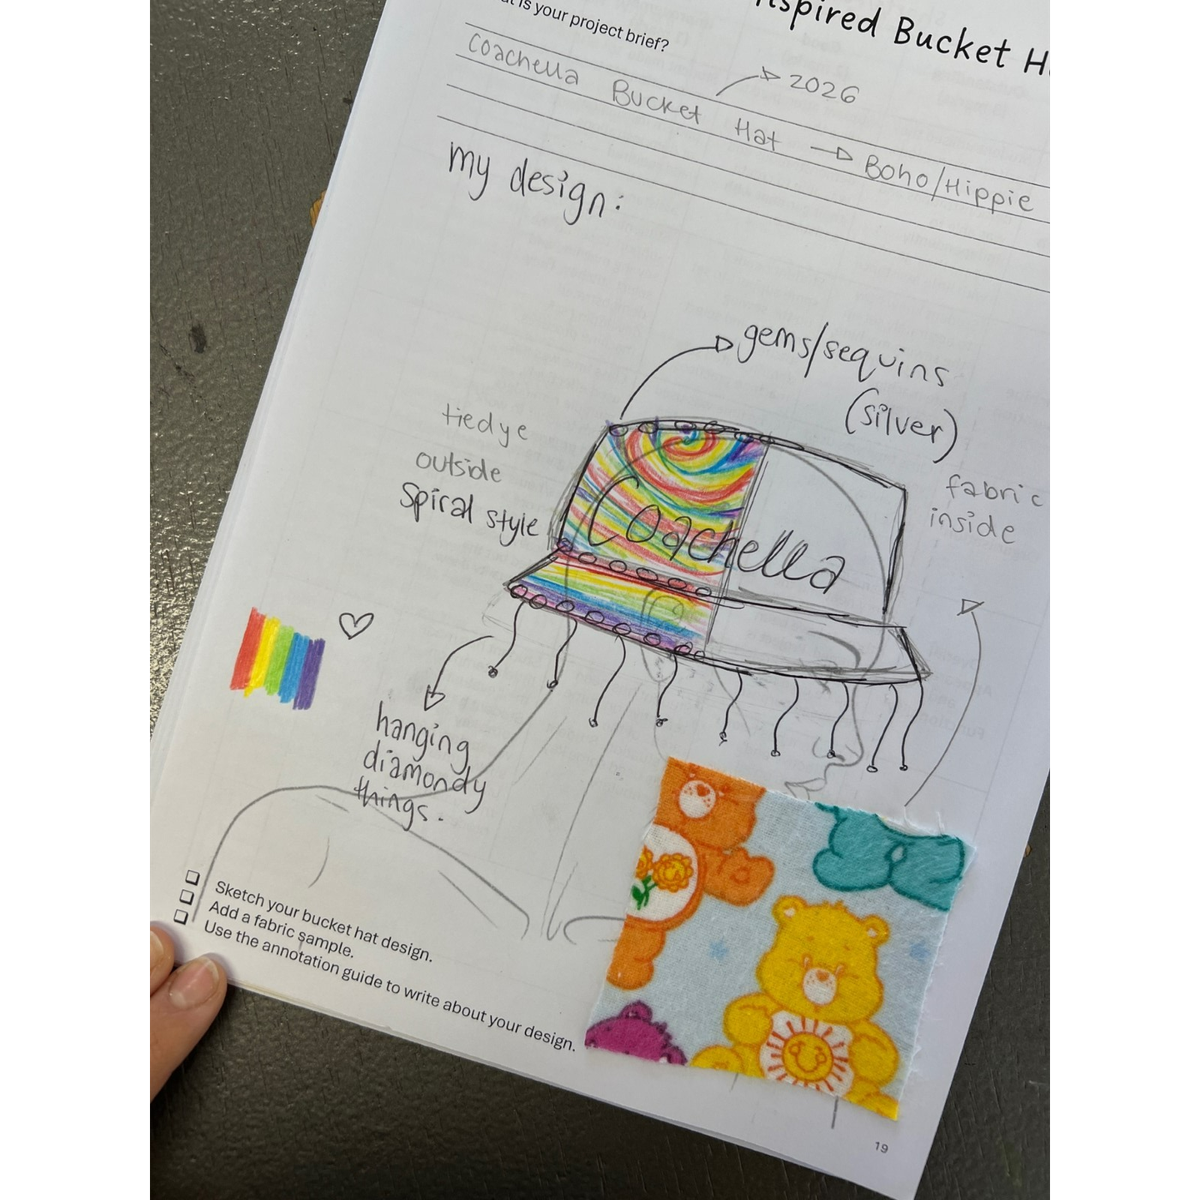 nspired Bucket H
at is your project brief?
2026
Coachella Bucket Hat → Boho/Hippie
my design:
gems/sequins
(silver)
tiedye
outside
spiral style
fabric
inside
Coachella
hanging
diamondy
things.
Sketch your bucket hat design.
Add a fabric sample.
Use the annotation guide to write about your design.
19